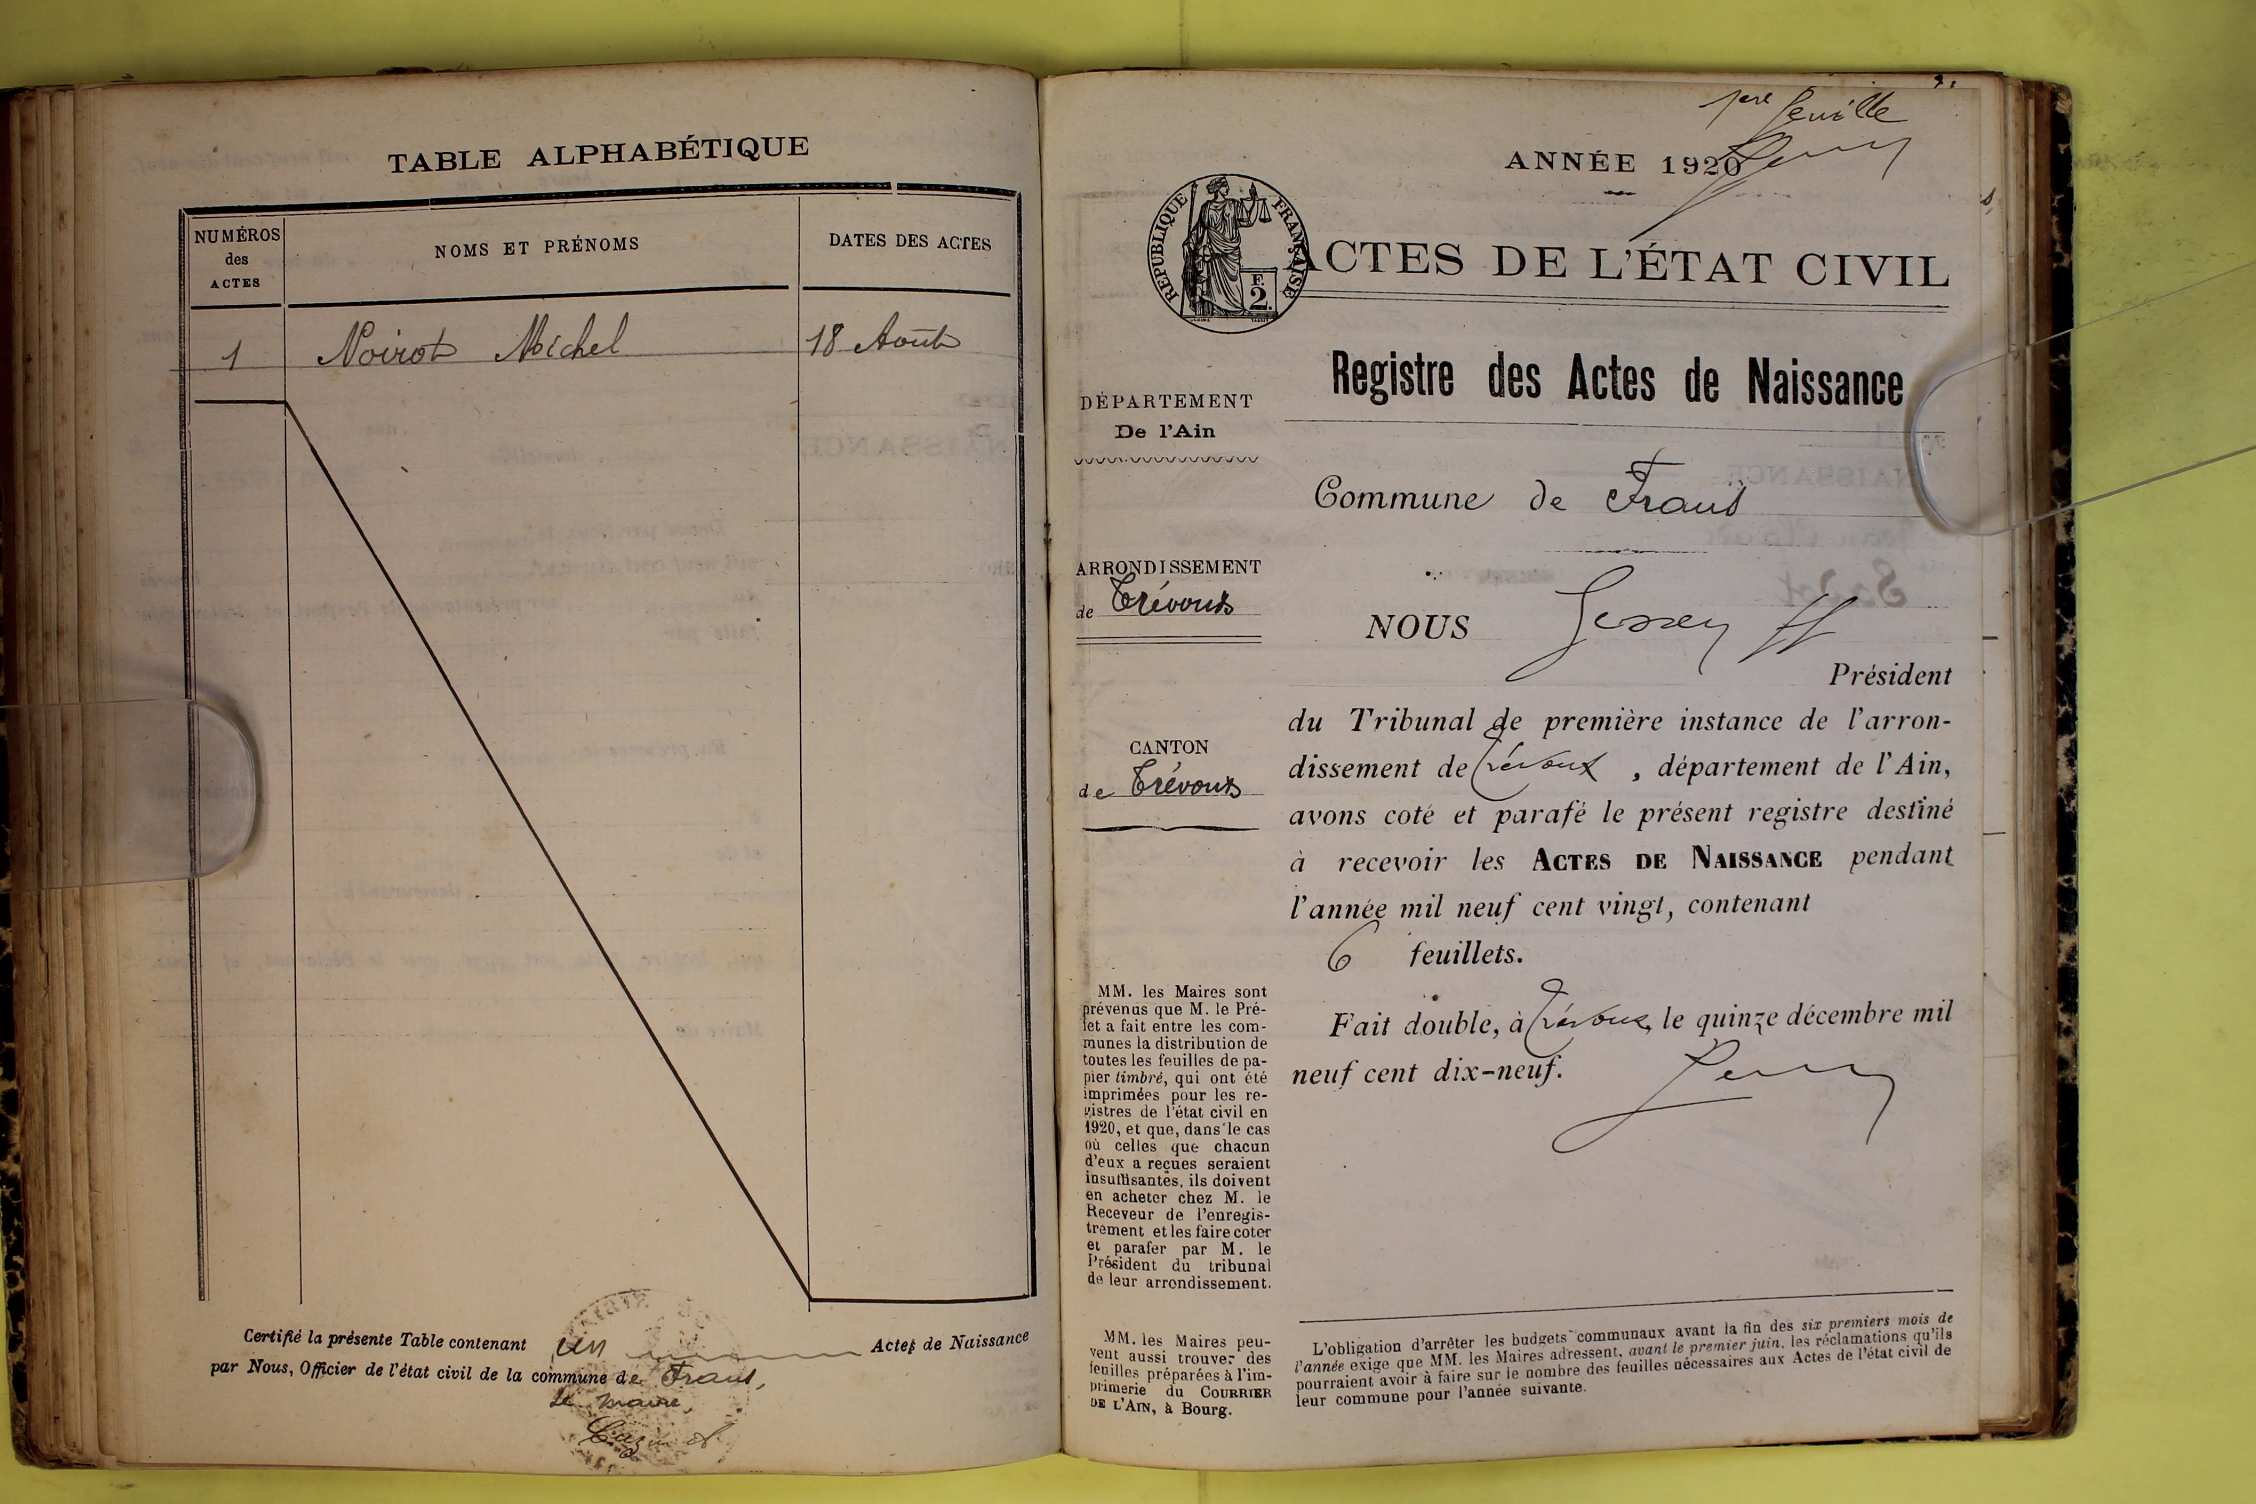 TABLE ALPHABÉTIQUE
NUMÉROS
des
ACTES
NOMS ET PRÉNOMS
DATES DES ACTES
1 Noirot Michel 18 Août
Certifié la présente Table contenant un Actes de Naissance
par Nous, Officier de l'état civil de la commune de Frans,
Le maire,
1ere feuille
ANNÉE 1920
RÉPUBLIQUE FRANÇAISE
F.
2
ACTES DE L'ÉTAT CIVIL
Registre des Actes de Naissance
DÉPARTEMENT
De l'Ain
Commune de Frans
ARRONDISSEMENT
de Trévoux
NOUS
Président
du Tribunal de première instance de l'arron-
dissement de Trévoux, département de l'Ain,
avons coté et parafé le présent registre destiné
à recevoir les ACTES DE NAISSANCE pendant
l'année mil neuf cent vingt, contenant
6 feuillets.
Fait double, à Trévoux, le quinze décembre mil
neuf cent dix-neuf.
CANTON
de Trévoux
MM. les Maires sont
prévenus que M. le Pré-
fet a fait entre les com-
munes la distribution de
toutes les feuilles de pa-
pier timbré, qui ont été
imprimées pour les re-
gistres de l'état civil en
1920, et que, dans le cas
où celles que chacun
d'eux a reçues seraient
insuffisantes, ils doivent
en acheter chez M. le
Receveur de l'enregis-
trement et les faire coter
et parafer par M. le
Président du tribunal
de leur arrondissement.
MM. les Maires peu-
vent aussi trouver des
feuilles préparées à l'im-
primerie du COURRIER
DE L'AIN, à Bourg.
L'obligation d'arrêter les budgets communaux avant la fin des six premiers mois de
l'année exige que MM. les Maires adressent, avant le premier juin, les réclamations qu'ils
pourraient avoir à faire sur le nombre des feuilles nécessaires aux Actes de l'état civil de
leur commune pour l'année suivante.